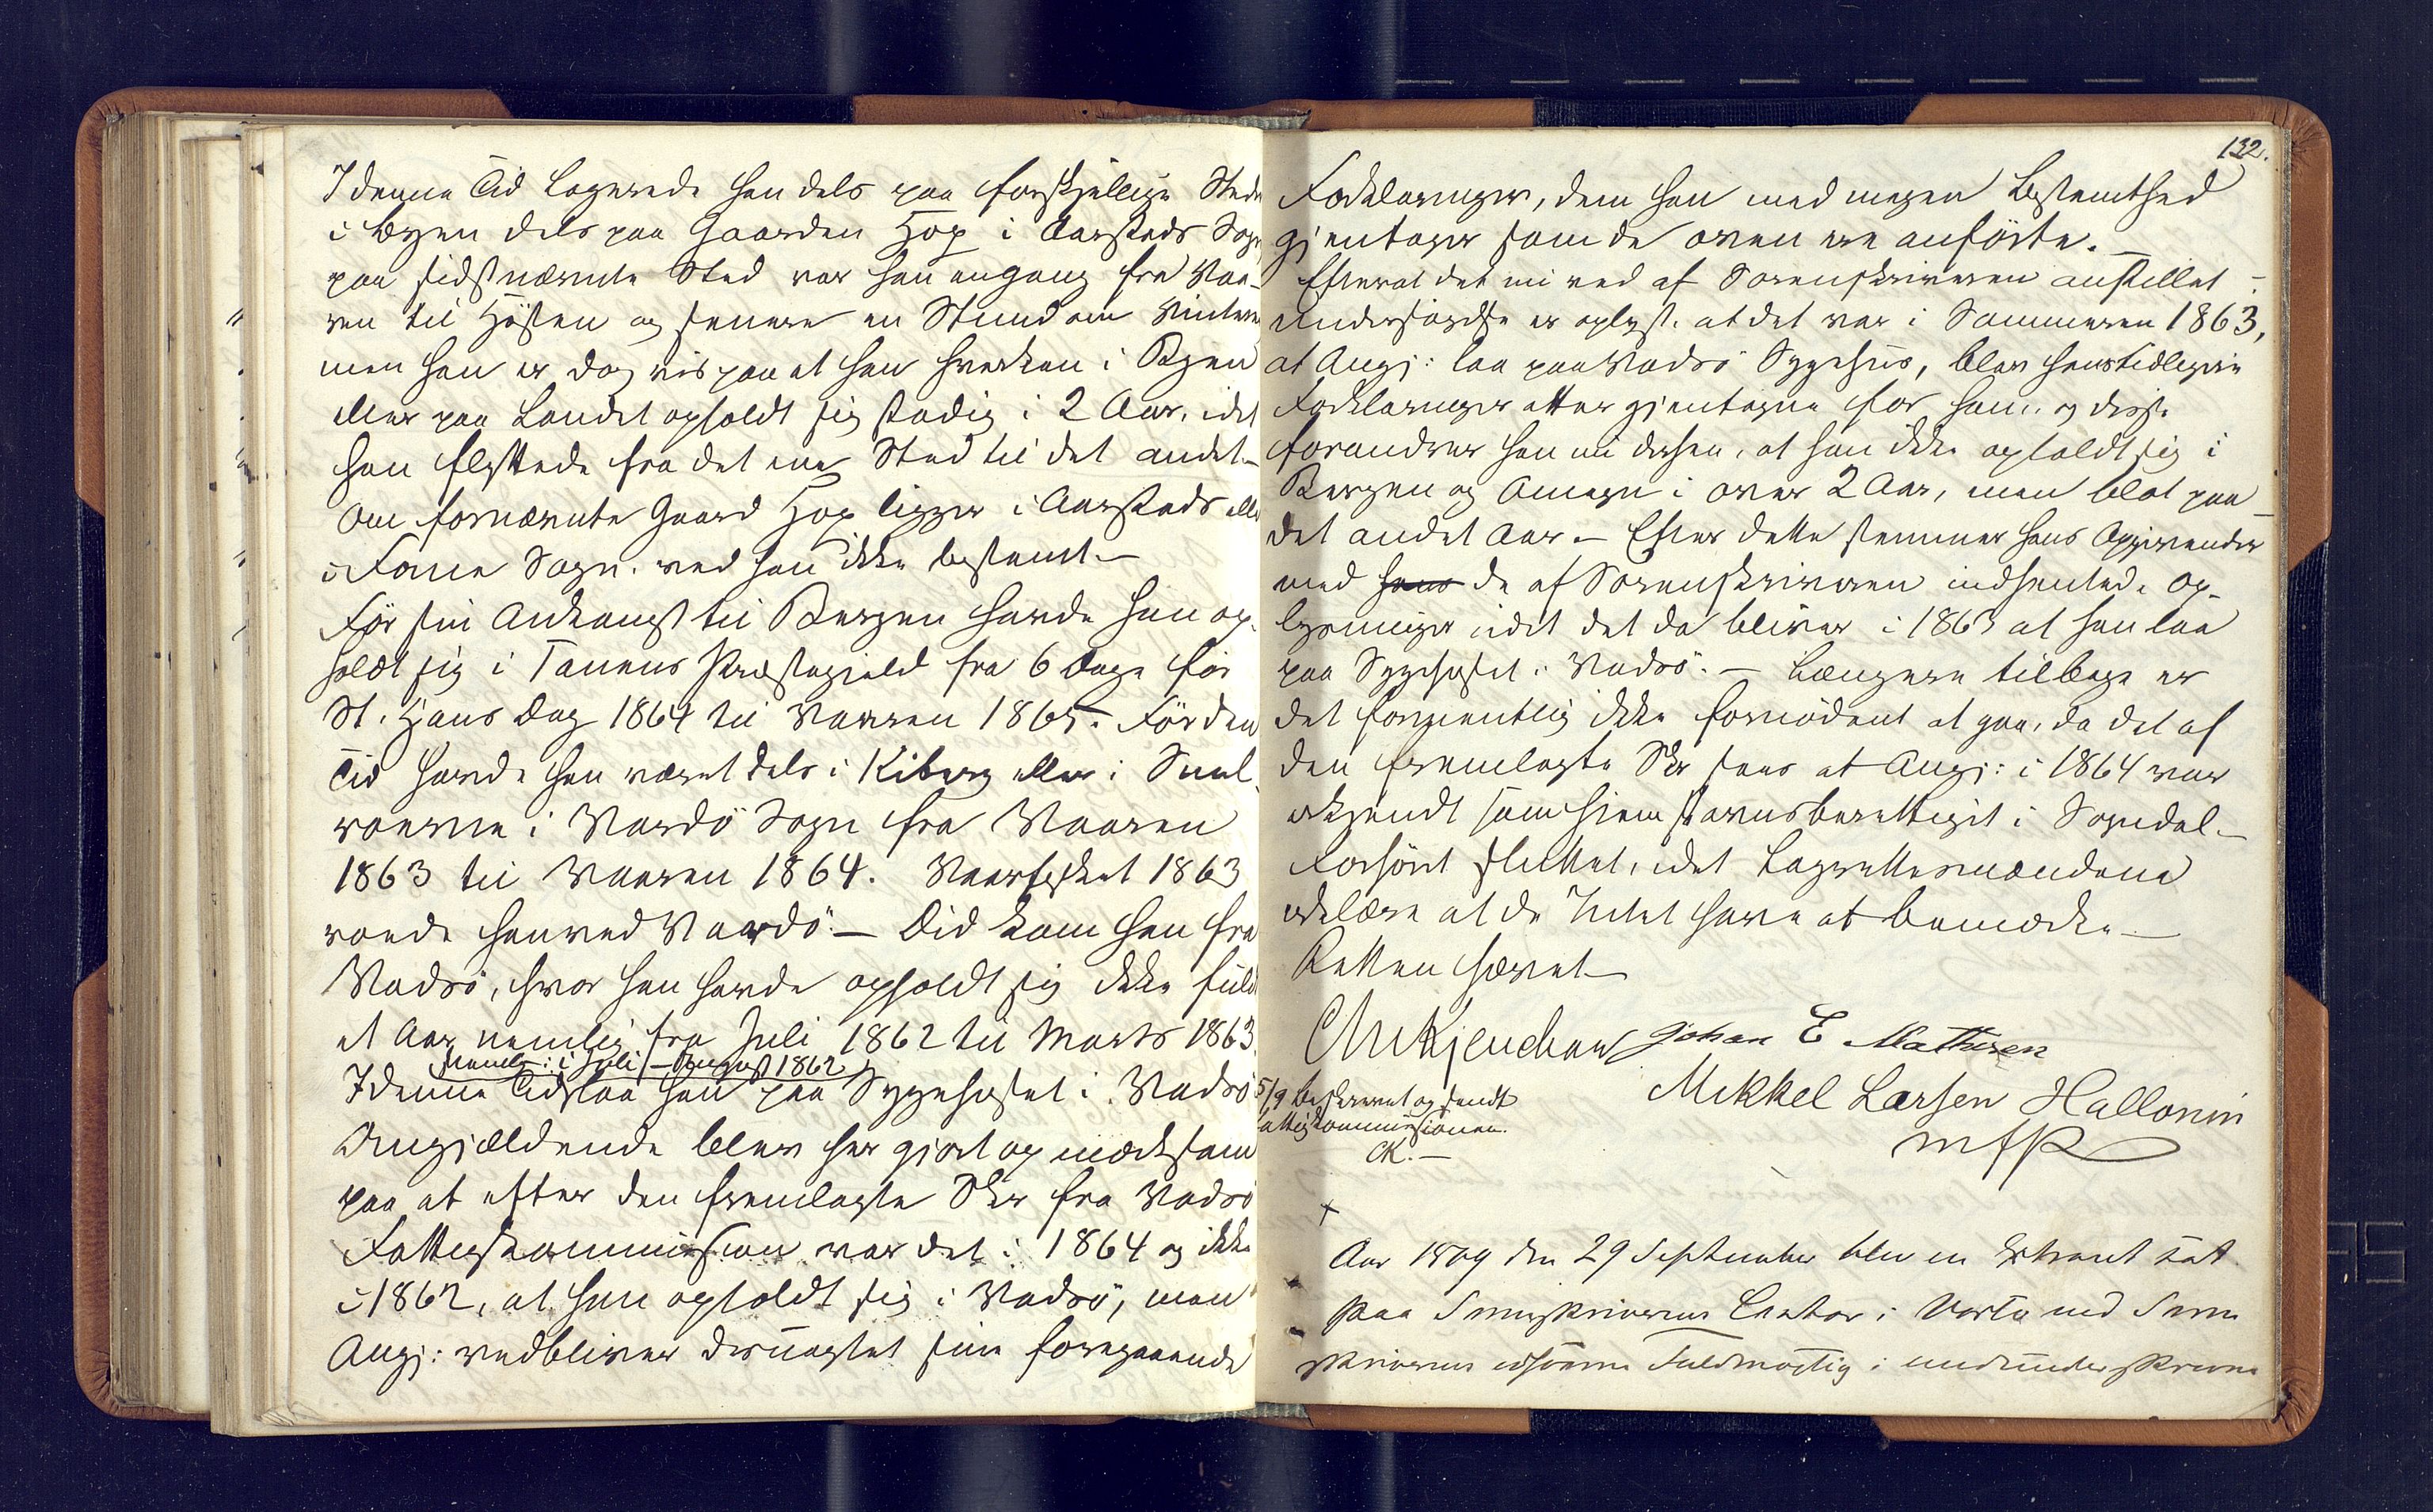 I denne Tid logerede han dels paa forskjellige Stede
i Byen dels paa Gaarden Hop i Aarstads Sogn
paa sidstnævnte Sted var han engang fra Vaa-
ren til Hösten og senere en Stund om Vinteren
men han er dog vis paa at han hverken i Byen
eller paa Landet opholdt sig stadig i 2 Aar, idet
han flyttede fra det ene Sted til det andet.-
Om fornævnte Gaard Hop ligger i Aarstads eller
i Fane Sogn. ved han ikke bestemt.-
För sin Ankomst til Bergen havde han op-
holdt sig i Tanens Præstegield fra 6 Dage för
St. Hans Dag 1864 til Vaaren 1865. För den
Tid havde han været dels i Kiberg eller i Smel-
roerne i Vardö Sogn fra Vaaren
1863 til Vaaren 1864. Vaarfisket 1863
roede han ved Vardö.- Did kom han fra
Vadsö, hvor han havde opholdt sig ikke fuldt
et Aar nemlig fra Juli 1862 til Marts 1863.
nemlig: i Juli - August 1862
I denne Tid laa han paa Sygehuset i Vadsö
Angjældende blev her gjort opmærksom
paa at efter den fremlagte Skr fra Vadsö
Fattigkommission var det i 1864 og ikke
i 1862, at han opholdt sig i Vadsö, men
Angj: vedbliver desuagtet sine foregaaende
132.
Forklaringer, dem han med megen Bestemthed
gjentager som de oven ere anförte.-
Efterat det nu ved af Sorenskriveren anstillet
Undersögelse er oplyst, at det var i Sommeren 1863,
at Angj: laa paa Vadsö Sygehus, blev hans tidligere
Forklaringer atter gjentagne for ham, og disse
forandrer han nu derhen, at han ikke opholdt sig i
Bergen og Omegn i over 2 Aar, men blot paa
det andet Aar.- Efter dette stemmer hans Opgivender
med hans de af Sorenskriveren indhentede Op-
lysninger idet det da bliver i 1863 at han laa
paa Sygehuset i Vadsö.- Længere tilbage er
det formentlig ikke fornödent at gaa, da det af
den fremlagte Skr sees at Angj: i 1864 var
erkjendt som hiemstavnsberettiget i Sogndal.-
Forhöret sluttet, idet Lagrettesmændene
erklære at de Intet have at bemærke.-
Retten hævet.-
Johan E Mathisen
Mekkel Larsen Hallonin
m f P
5/9 beskrevet og sendt
Fattigkommissionen.
CK.-
+
Aar 1869 den 29 September blev en Extraret sat
paa Sorenskriverens Contor i Vadsö ved Soren
skriverens edsvorne Fuldmægtig i medunderskrevne